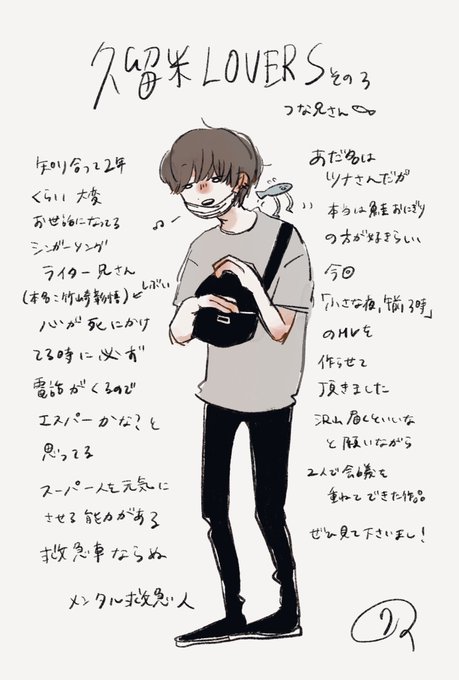 久留米LOVERS その3
つな兄さん
知り合って2年
くらい 大変
お世話になってる
シンガーソング
ライター兄さん
(本名:竹崎彰悟) ←しぶい
心が死にかけ
てる時に必ず
電話がくるので
エスパーかな?と
思ってる
スーパー人を元気に
させる能力がある
救急車ならぬ
メンタル救急人
あだ名は
ツナさんだが
本当は鮭おにぎり
の方が好きらしい
今回
「小さな夜,午前3時」
のMVを
作らせて
頂きました
沢山届くといいな
と願いながら
2人で会議を
重ねてできた作品
ぜひ見て下さいまし!